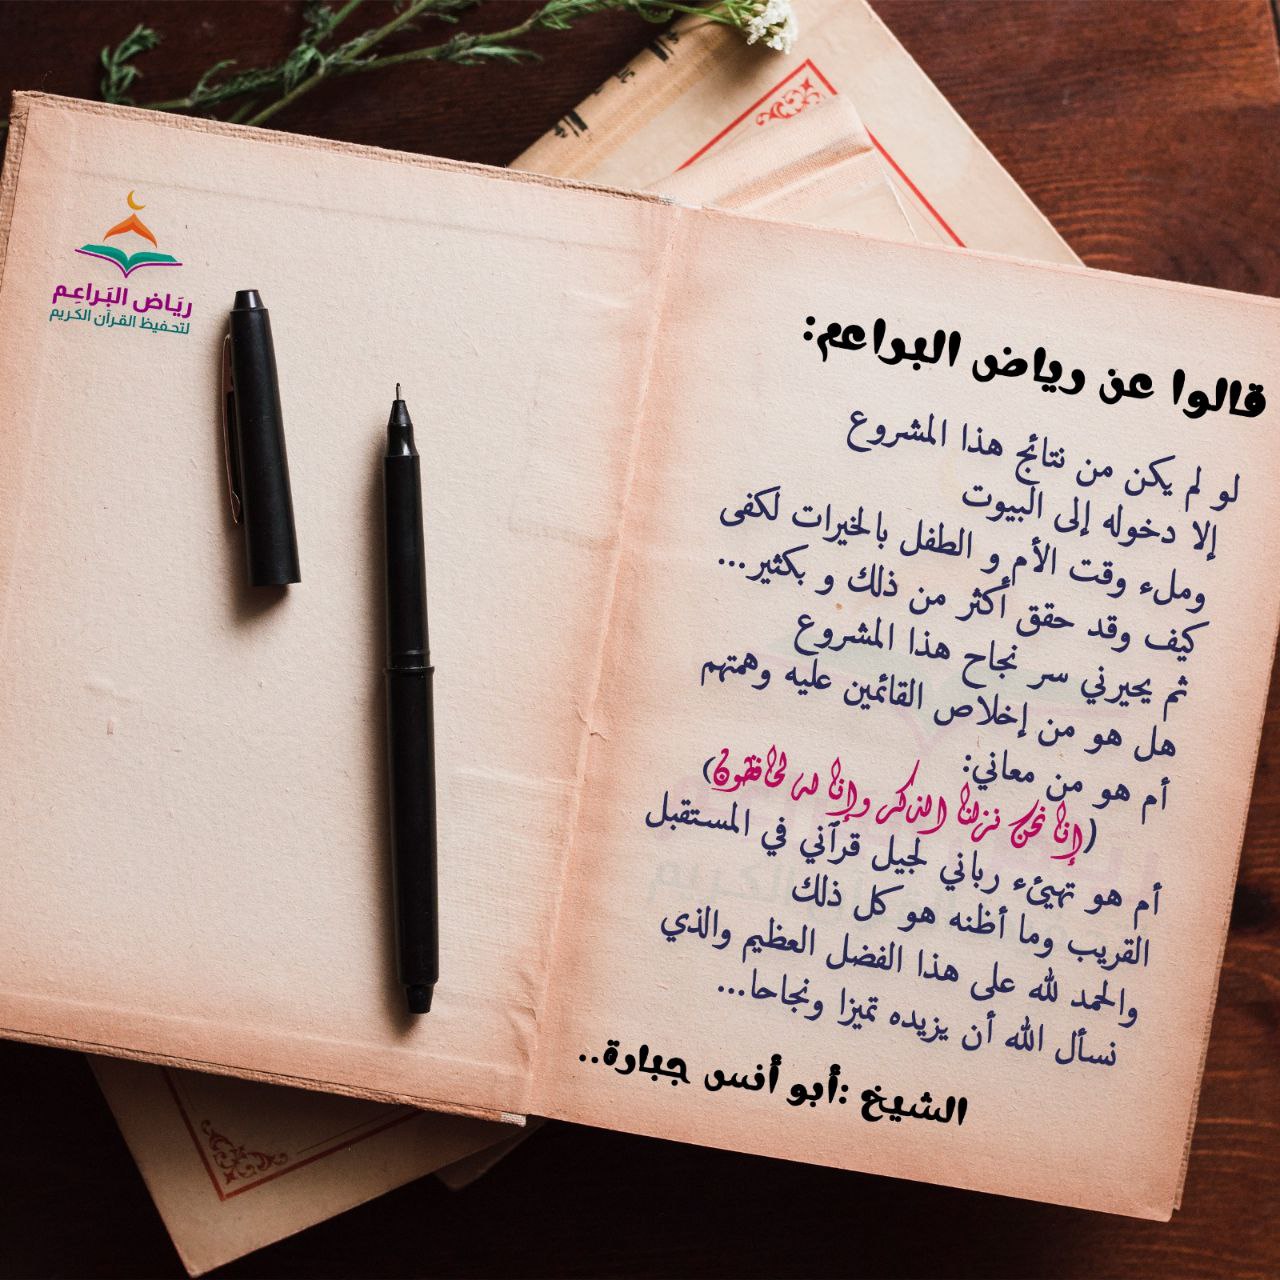 رياض البراعم
لتحفيظ القرآن الكريم
قالوا عن رياض البراعم:
لو لم يكن من نتائج هذا المشروع
إلا دخوله إلى البيوت
وملء وقت الأم و الطفل بالخيرات لكفى
كيف وقد حقق أكثر من ذلك و بكثير...
ثم يحيرني سر نجاح هذا المشروع
هل هو من إخلاص القائمين عليه وهمتهم
أم هو من معاني:
(إنا نحن نزلنا الذكر وإنا له لحافظون)
أم هو تهيئء رباني لجيل قرآني في المستقبل
القريب وما أظنه هو كل ذلك
والحمد لله على هذا الفضل العظيم والذي
نسأل الله أن يزيده تميزا ونجاحا...
الشيخ :أبو أنس جبارة..